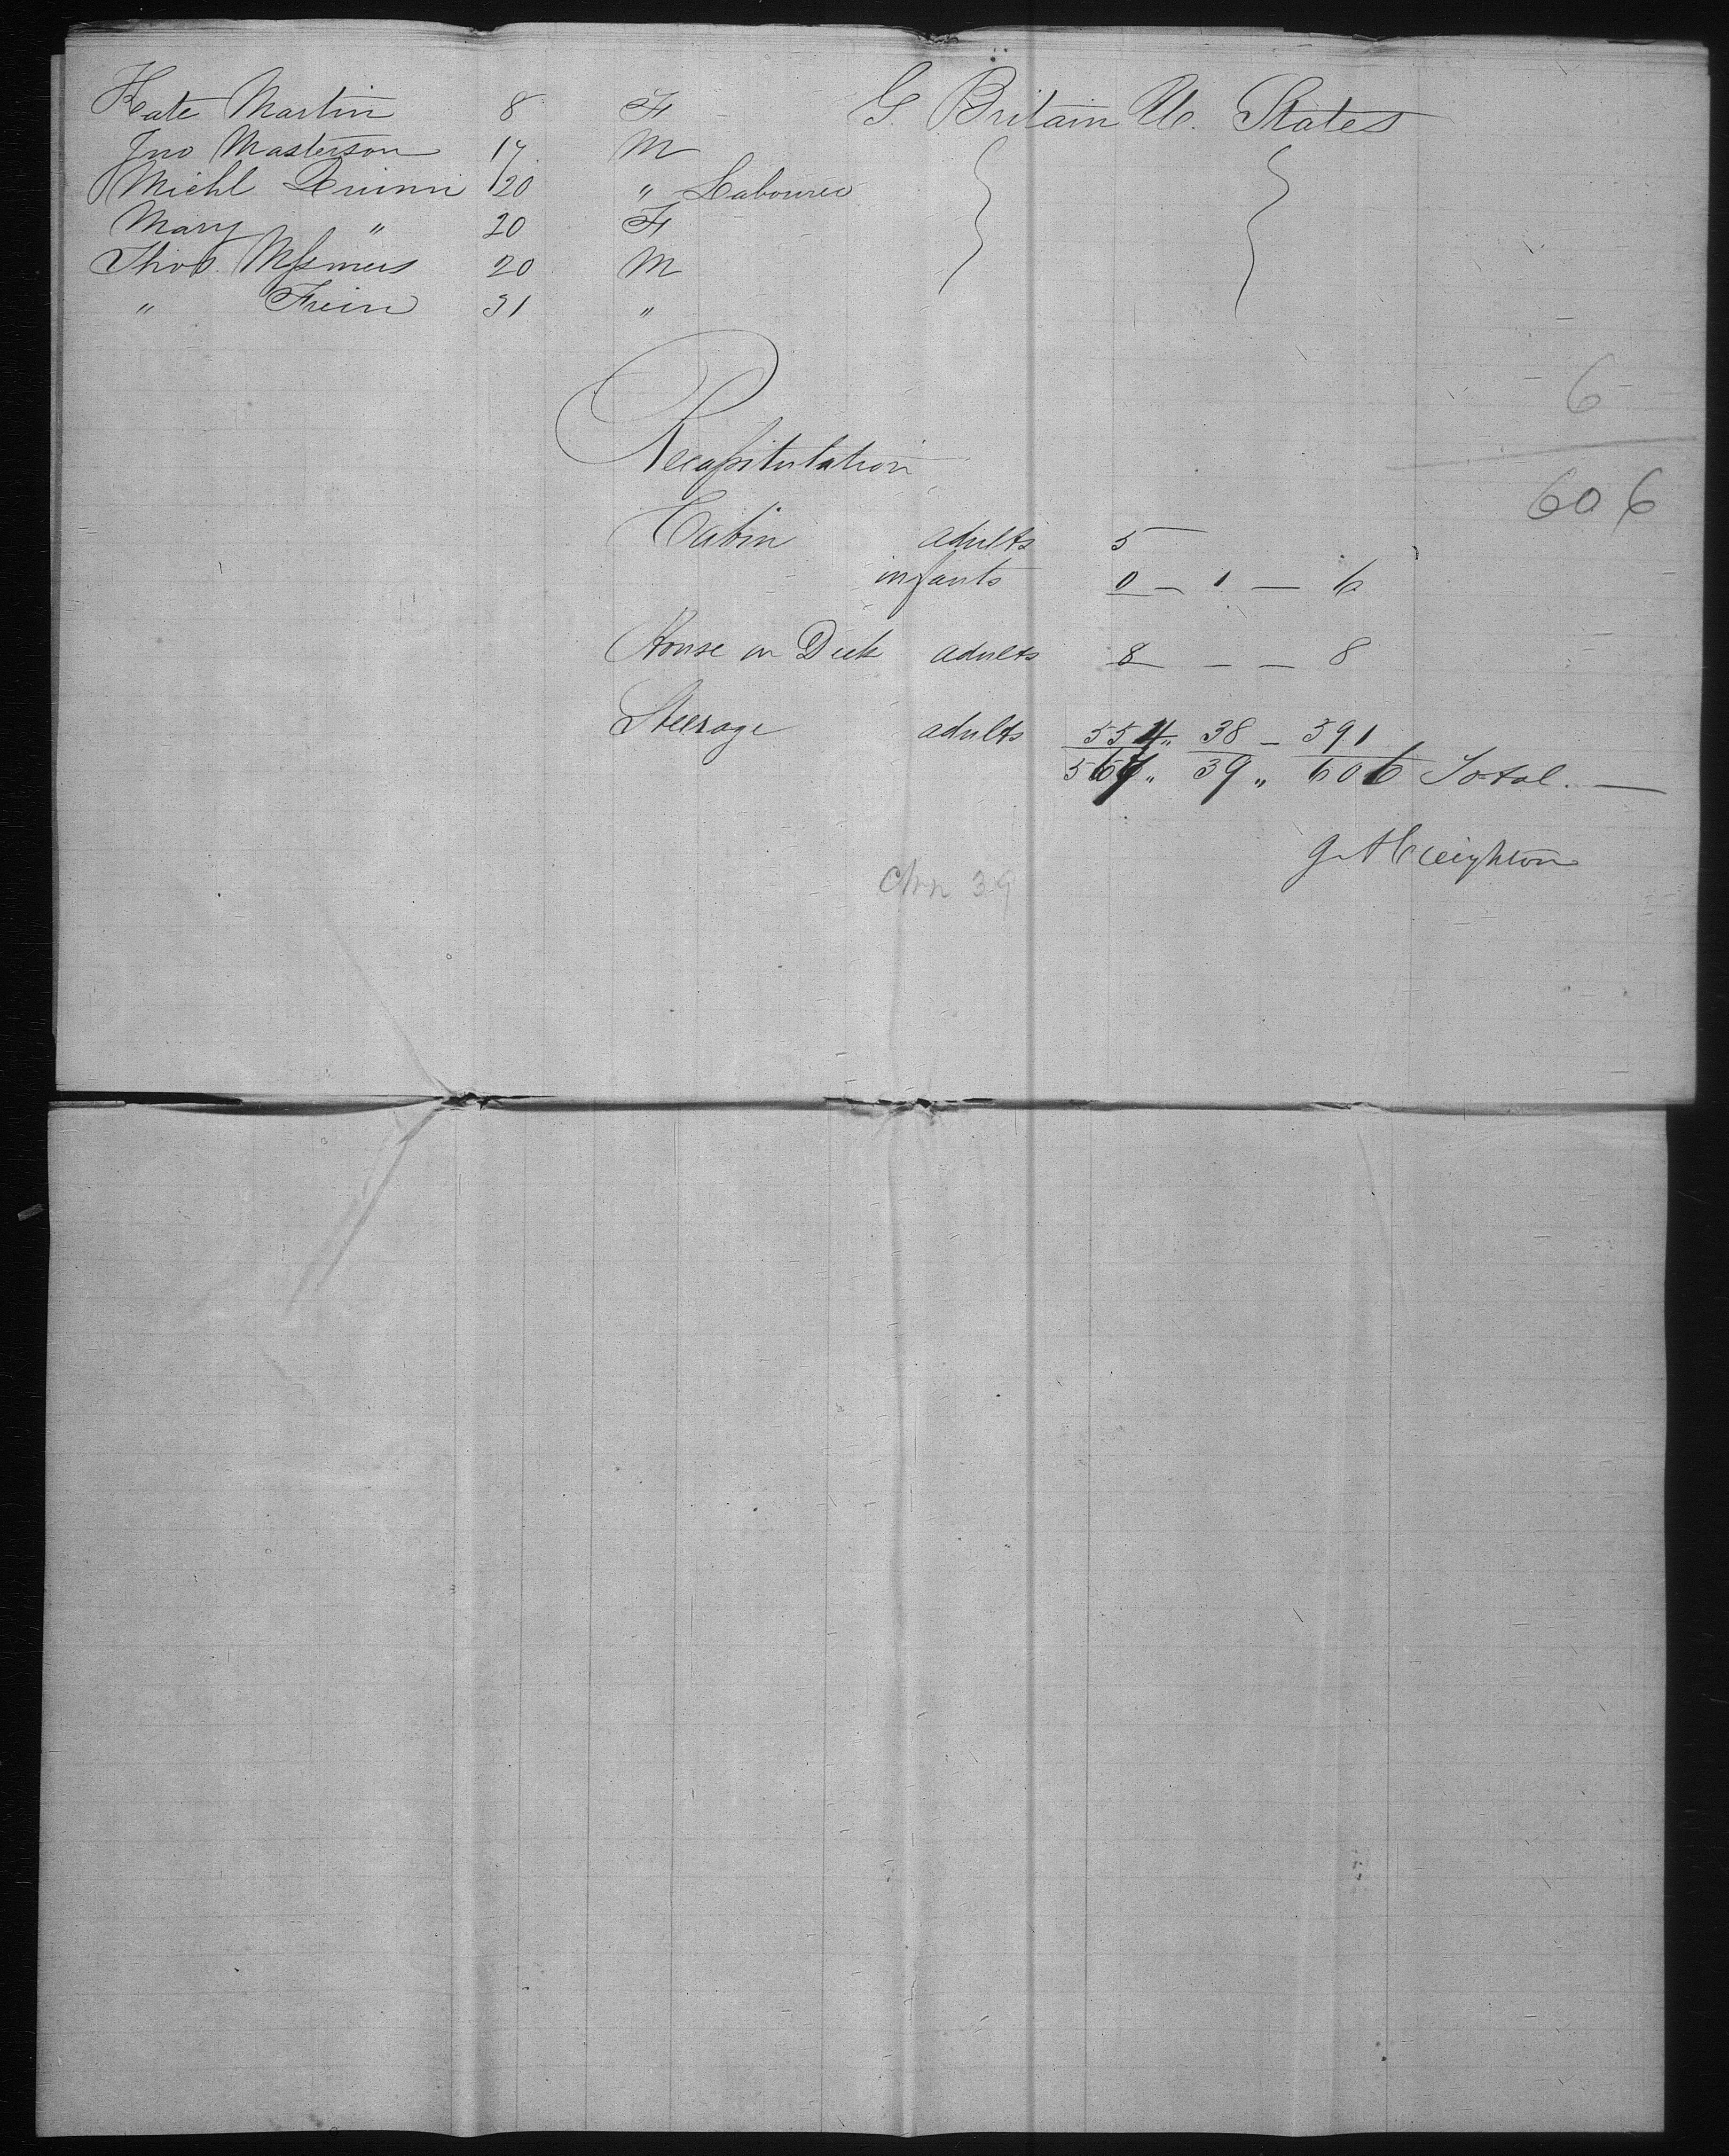 Kate Martin 8 F G. Britain U. States
Jno Masterson 17 M
Michl Quinn 20 " Labourer
Mary " 20 F
Thos. 20 M
" Frein 31 "
6
606
Recapitulation
Cabin adults 5
infants 0 — 1 — 6
House on Deck adults 8 — — 8
Steerage adults 554 " 38 — 591
567 " 39 " 606 Total. —
Creighton
39